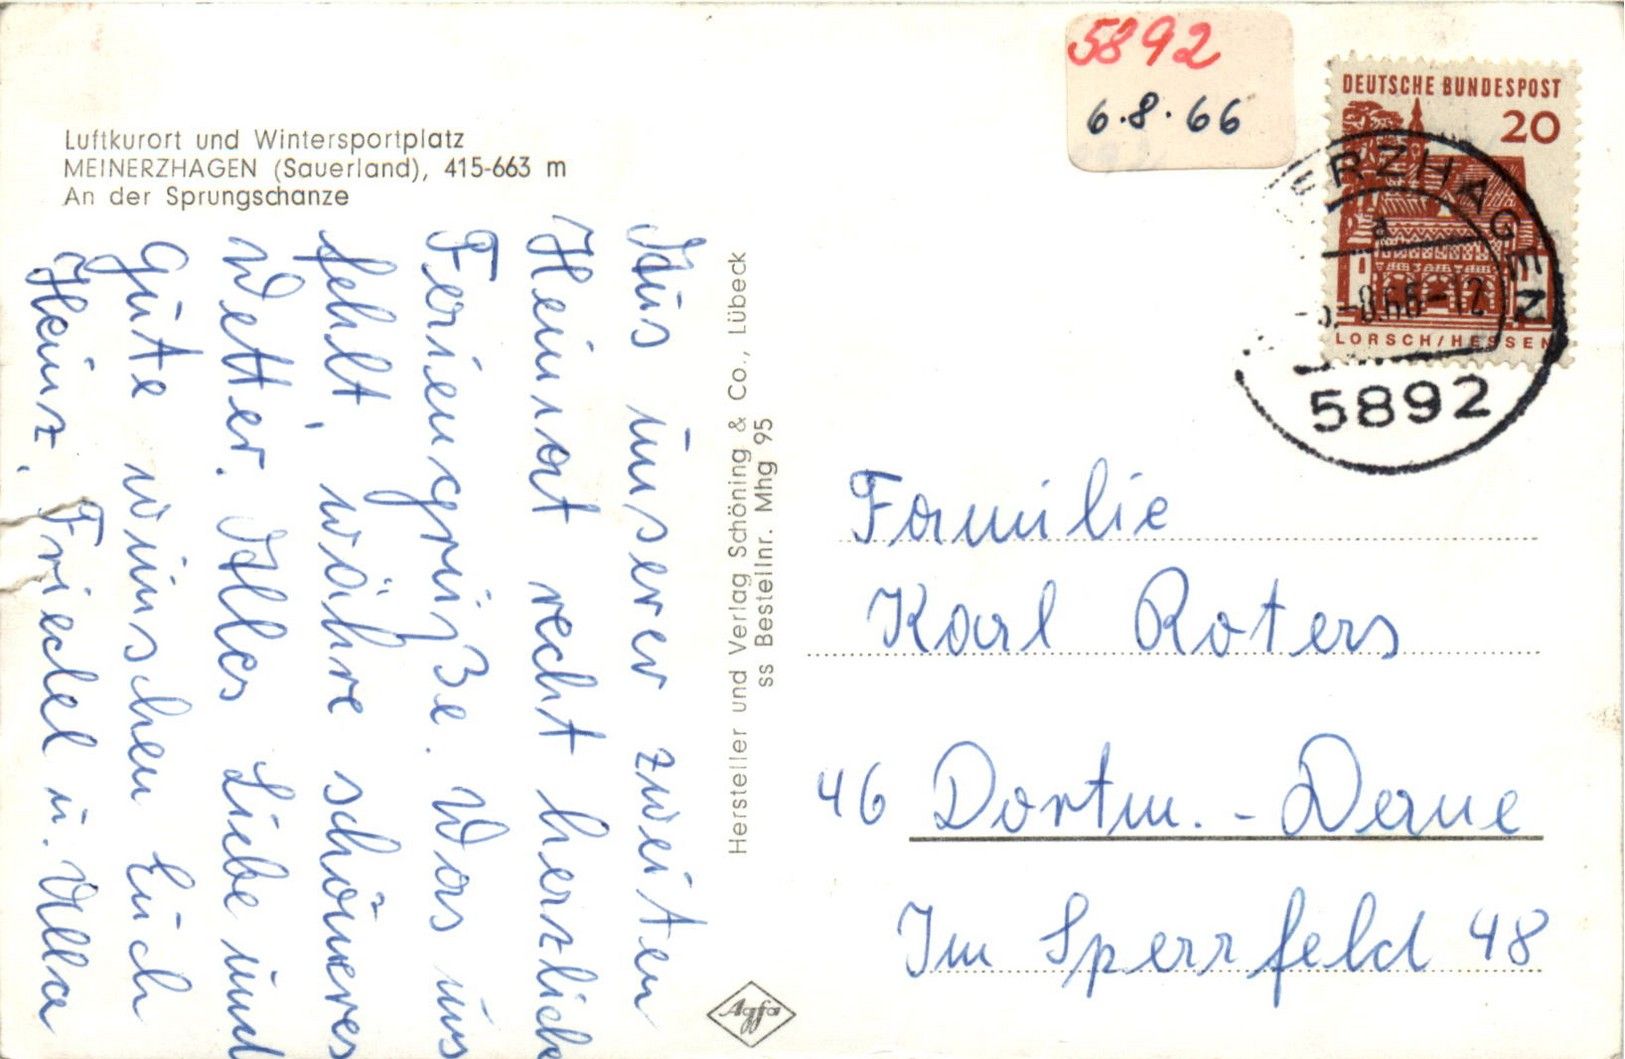 Luftkurort und Wintersportplatz
MEINERZHAGEN (Sauerland), 415-663 m
An der Sprungschanze
Aus unserer zweiten
Heimat recht herzliche
Feriengrüße. Was uns
fehlt, währe schöneres
Wetter. Alles Liebe und
Gute wünschen Euch
Heinz, Friedel u. Ulla
Hersteller und Verlag Schöning & Co., Lübeck
ss Bestellnr. Mhg 95
Agfa
5892
6.8.66
DEUTSCHE BUNDESPOST
20
LORSCH/HESSEN
RZHAGEN
a
-8.66-12
5892
Familie
Karl Roters
46 Dortm.-Derne
Im Sperrfeld 48